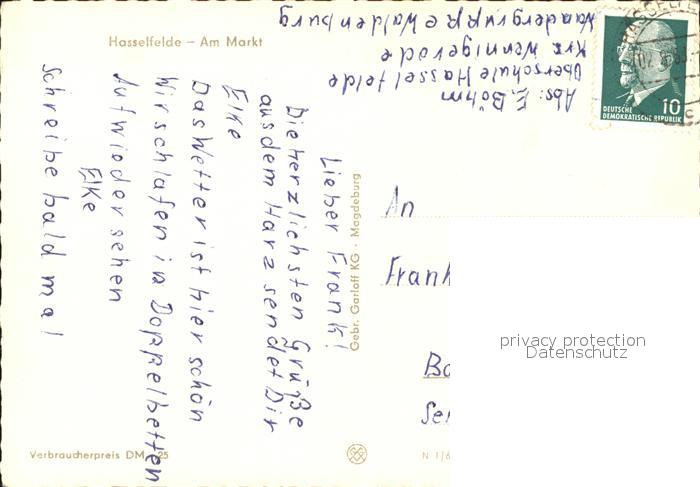 Hasselfelde – Am Markt
Abs: E. Böhm
Oberschule Hasselfelde
Krs. Wernigerode
Wandergruppe Waldenburg
DEUTSCHE
DEMOKRATISCHE REPUBLIK
10
Lieber Frank!
Die herzlichsten Grüße
aus dem Harz sendet Dir
Elke
Das Wetter ist hier schön
Wir schlafen in Doppelbetten
Aufwiedersehen
Elke
Schreibe bald mal
Gebr. Garloff KG · Magdeburg
An
Frank
privacy protection
Datenschutz
Verbraucherpreis DM 25
N 1/6